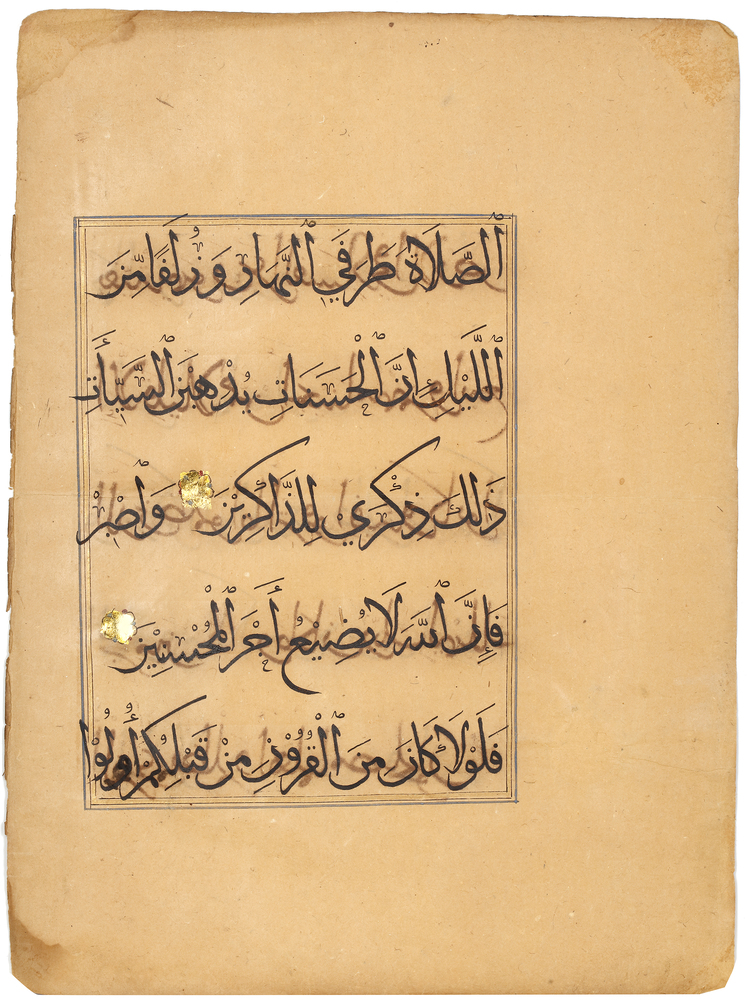 ٱلصَّلَاةَ طَرَفَيِ ٱلنَّهَارِ وَزُلَفًا مِّنَ
ٱللَّيْلِ إِنَّ ٱلْحَسَنَاتِ يُذْهِبْنَ ٱلسَّيِّأَتِ
ذَلِكَ ذِكْرَي لِلذَّاكِرِيْنَ وَٱصْبِرْ
فَإِنَّ ٱللَّهَ لَا يُضِيْعُ أَجْرَ ٱلْمُحْسِنِيْنَ
فَلَوْلَا كَانَ مِنَ ٱلْقُرُوْنِ مِنْ قَبْلِكُمْ أُولُوْا